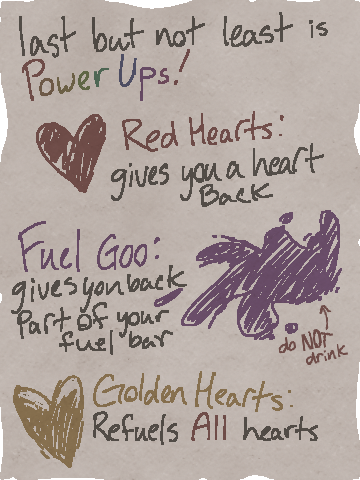 last but not least is
Power Ups!
Red Hearts:
gives you a heart
Back
Fuel Goo:
gives you back
Part of your
fuel bar
do NOT
drink
Golden Hearts:
Refuels All hearts